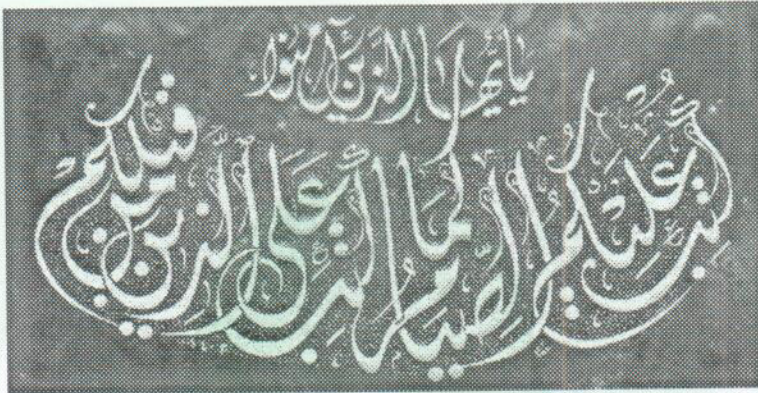 يا أيها الذين آمنوا
كتب عليكم الصيام كما كتب على الذين من قبلكم